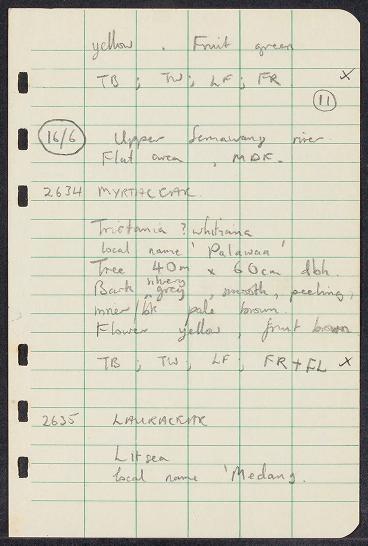 yellow . Fruit green
TB ; TW ; LF ; FR X
11
16/6 Upper Semawang river.
Flat area , MDF.
2634 MYRTACEAE.
Tristania ? whitiana
local name 'Palawan'
Tree 40m x 60cm dbh.
silvery
Bark grey , smooth, peeling,
inner/bk pale brown.
Flower yellow, fruit brown
TB ; TW ; LF ; FR + FL X
2635 LAURACEAE
Litsea
local name 'Medang.